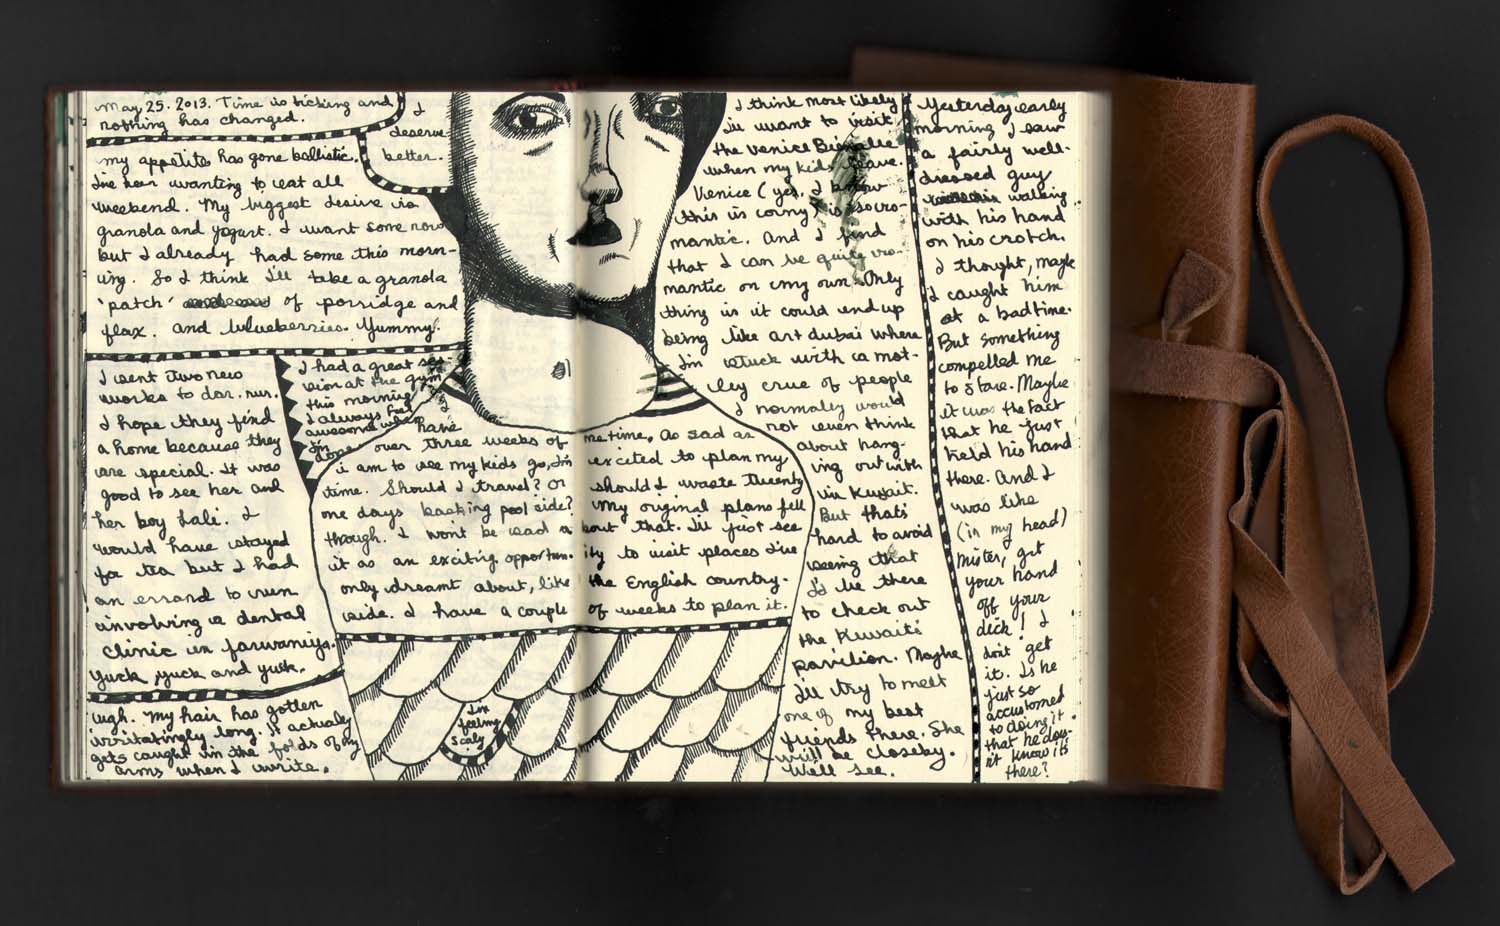 May, 25. 2013. Time is ticking and
nothing has changed.
I
deserve
better.
my appetite has gone ballistic.
I've been wanting to eat all
weekend. My biggest desire is
granola and yogurt. I want some now
but I already had some this morn-
ing. So I think I'll take a granola
'patch' of porridge and
flax. and blueberries. Yummy.
I sent two new
works to dar. nur.
I hope they find
a home because they
are special. It was
good to see her and
her boy Lali. I
would have stayed
for tea but I had
an errand to run
involving a dental
clinic in farwaniya.
Yuck, yuck and yuck.
ugh. My hair has gotten
irritatingly long. It actually
gets caught in the folds of my
arms when I write.
I had a great ses-
sion at the gym
this morning.
I always feel
awesome when
I'm
done.
I
have
over three weeks of me time. As sad as
i am to see my kids go, I'm excited to plan my
time. Should I travel? Or should I waste twenty
one days basking pool side? My original plans fell
though. I won't be sad about that. I'll just see
it as an exciting opportunity to visit places I've
only dreamt about, like the English country-
side. I have a couple of weeks to plan it.
I'm
feeling
scaly
I think most likely
I'll want to visit
the Venice Biennalle
when my kids leave.
Venice (yes, I know
this is corny) is so ro-
mantic. And I find
that I can be quite ro-
mantic on my own. Only
thing is it could end up
being like art dubai where
I'm stuck with a mot-
ley crue of people
I normally would
not even think
about hang-
ing out with
in Kuwait.
But that's
hard to avoid
seeing that
I'd be there
to check out
the Kuwaiti
pavilion. Maybe
I'll try to meet
one of my best
friends there. She
will be closeby.
We'll see.
Yesterday early
morning I saw
a fairly well-
dressed guy
walking
with his hand
on his crotch.
I thought, maybe
I caught him
at a bad time.
But something
compelled me
to stare. Maybe
it was the fact
that he just
held his hand
there. And I
was like
(in my head)
Mister, get
your hand
off your
dick! I
don't get
it. Is he
just so
accustomed
to doing it
that he does-
n't know it's
there?